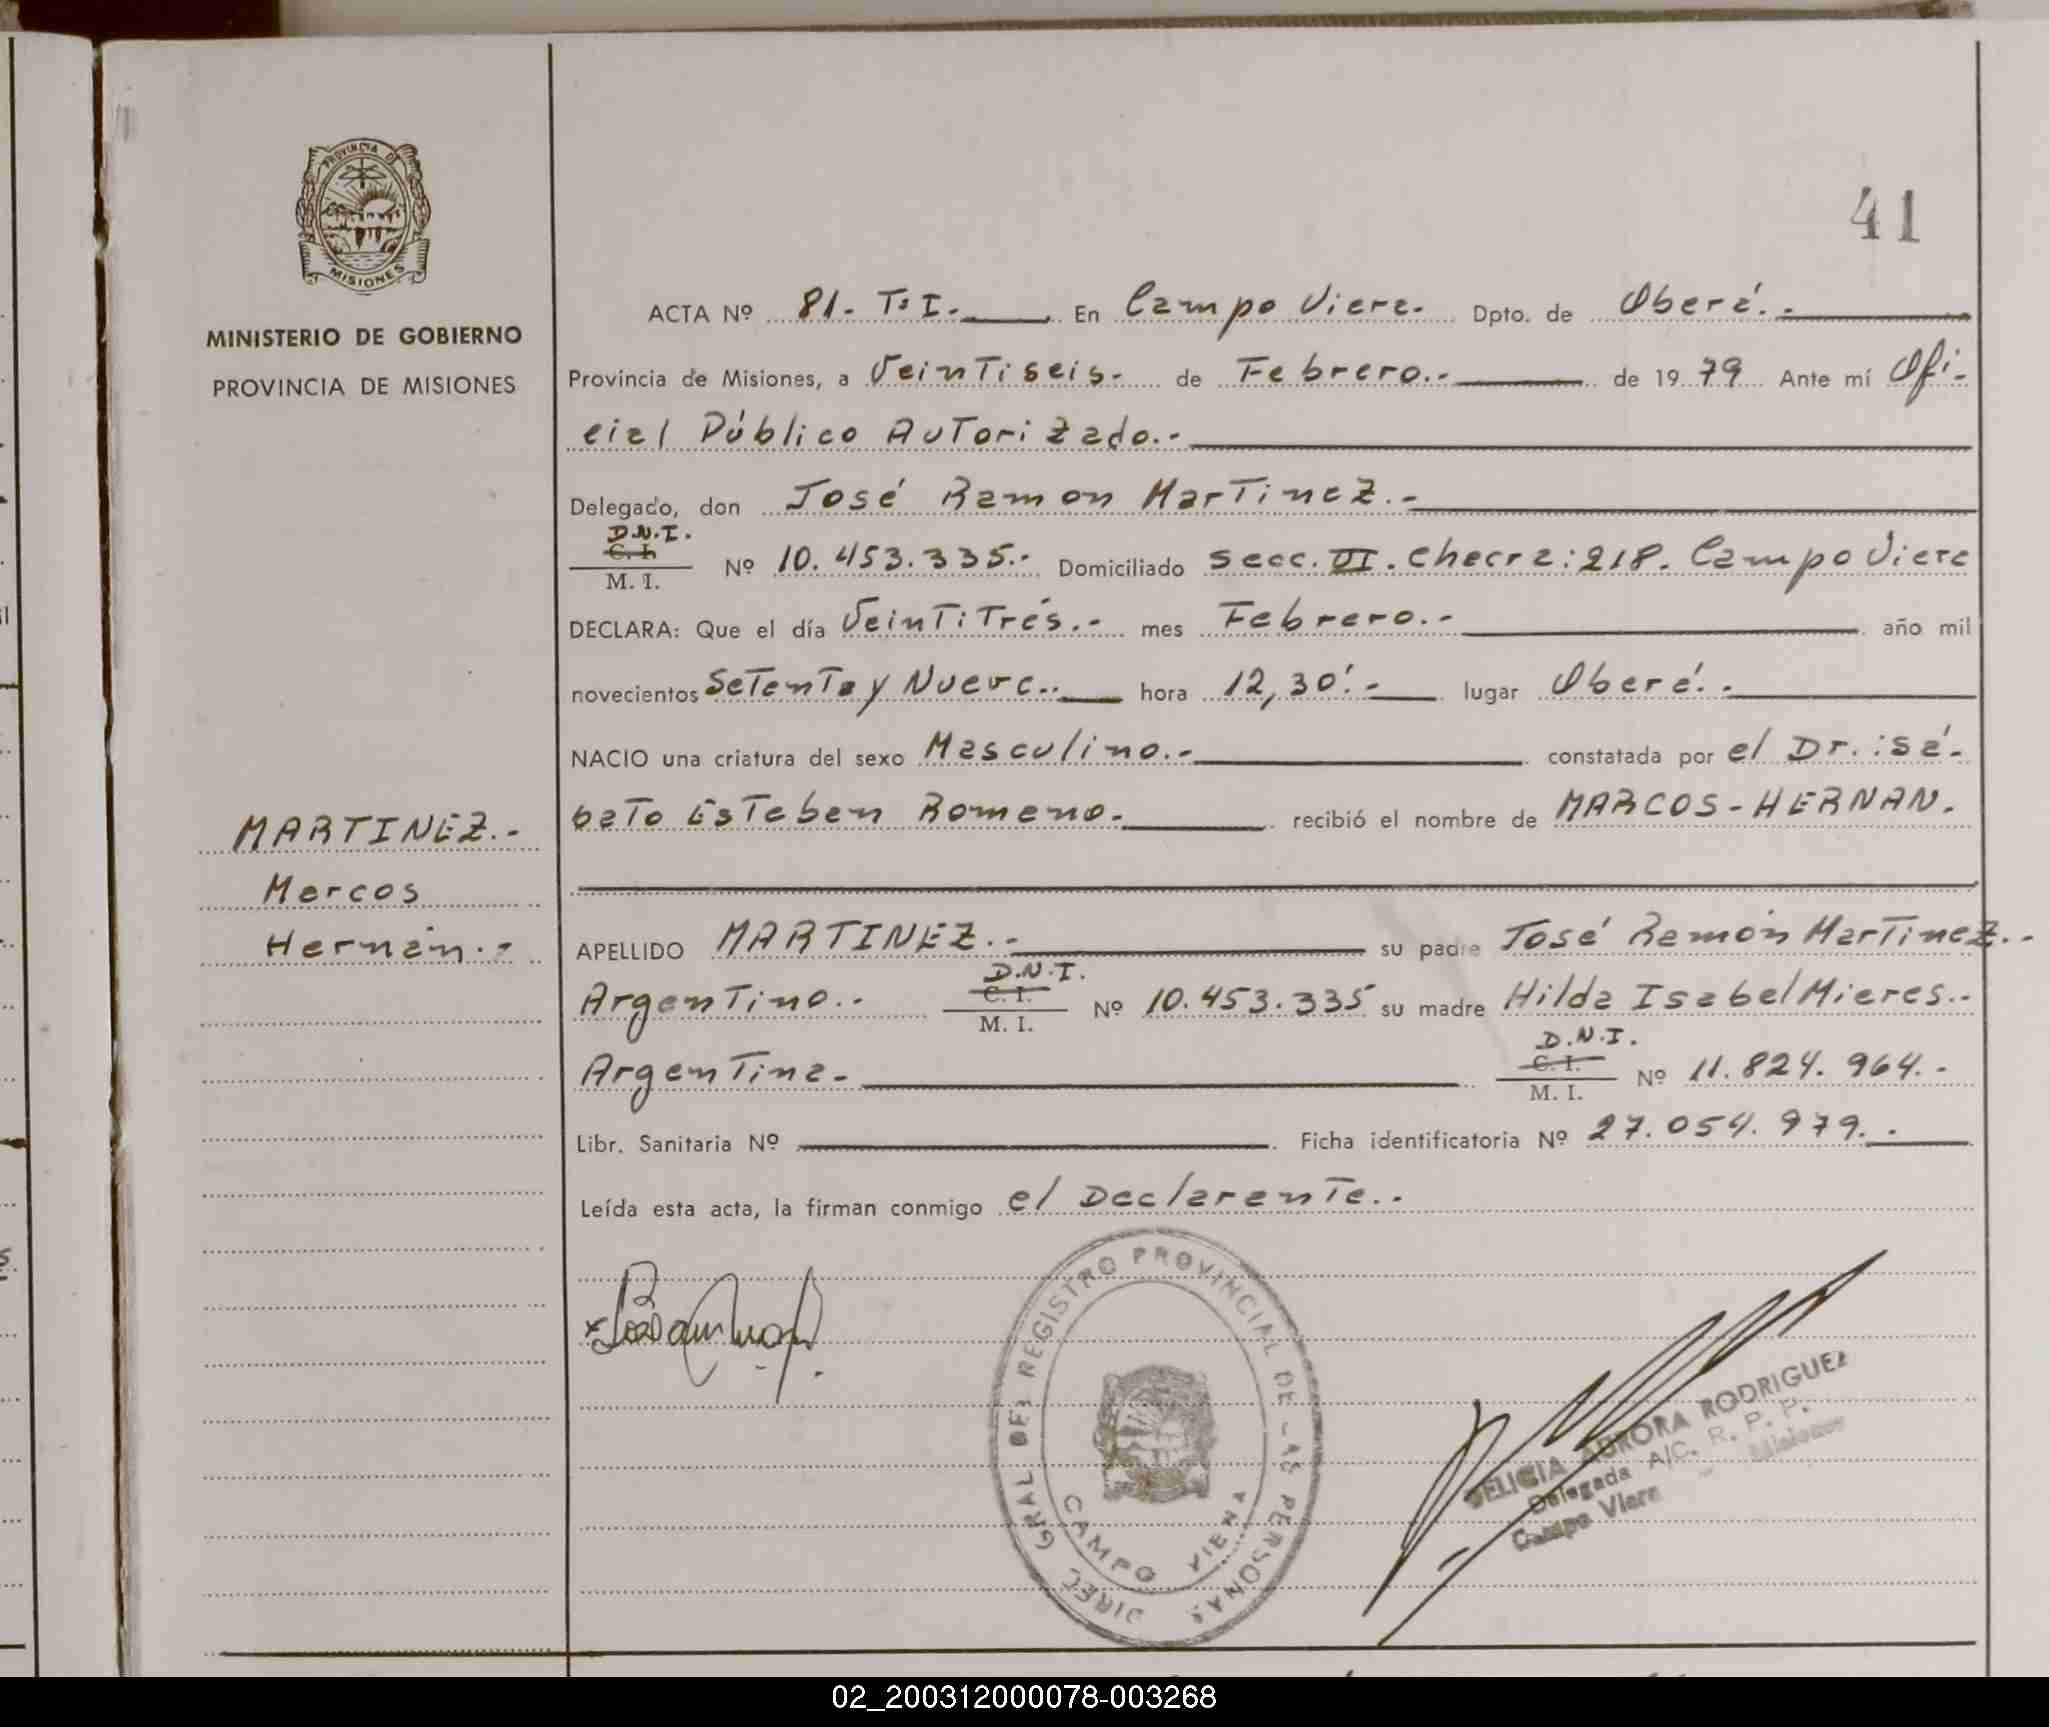 PROVINCIA DE
MISIONES
MINISTERIO DE GOBIERNO
PROVINCIA DE MISIONES
41
ACTA Nº 81.- T:I.- En Campo Viera.- Dpto. de Oberá.-
Provincia de Misiones, a Veintiseis.- de Febrero.- de 1979 Ante mí Ofi-
cial Público Autorizado.-
Delegado, don José Ramon Martinez.-
D.N.I.
C. I.
M. I.
Nº 10.453.335.- Domiciliado Secc. VI. Chacra: 218. Campo Viera
DECLARA: Que el día Veintitrés.- mes Febrero.- año mil
novecientos Setenta y Nueve.- hora 12,30'.- lugar Oberá.-
NACIO una criatura del sexo Masculino.- constatada por el Dr.: Sa-
bato Esteban Romano.- recibió el nombre de MARCOS-HERNAN.
MARTINEZ.-
Marcos
Hernán.-
APELLIDO MARTINEZ.- su padre José Ramón Martinez.-
Argentino.- D.N.I. C. I. M. I. Nº 10.453.335 su madre Hilda Isabel Mieres.-
Argentina.- D.N.I. C. I. M. I. Nº 11.824.964.-
Libr. Sanitaria Nº Ficha identificatoria Nº 27.054.979.-
Leída esta acta, la firman conmigo el Declarante.-
DIREC. GRAL DEL REGISTRO PROVINCIAL DE LAS PERSONAS
CAMPO VIERA
DELICIA AURORA RODRIGUEZ
Delegada A/C. R. P. P.
Campo Viera Misiones
02_200312000078-003268